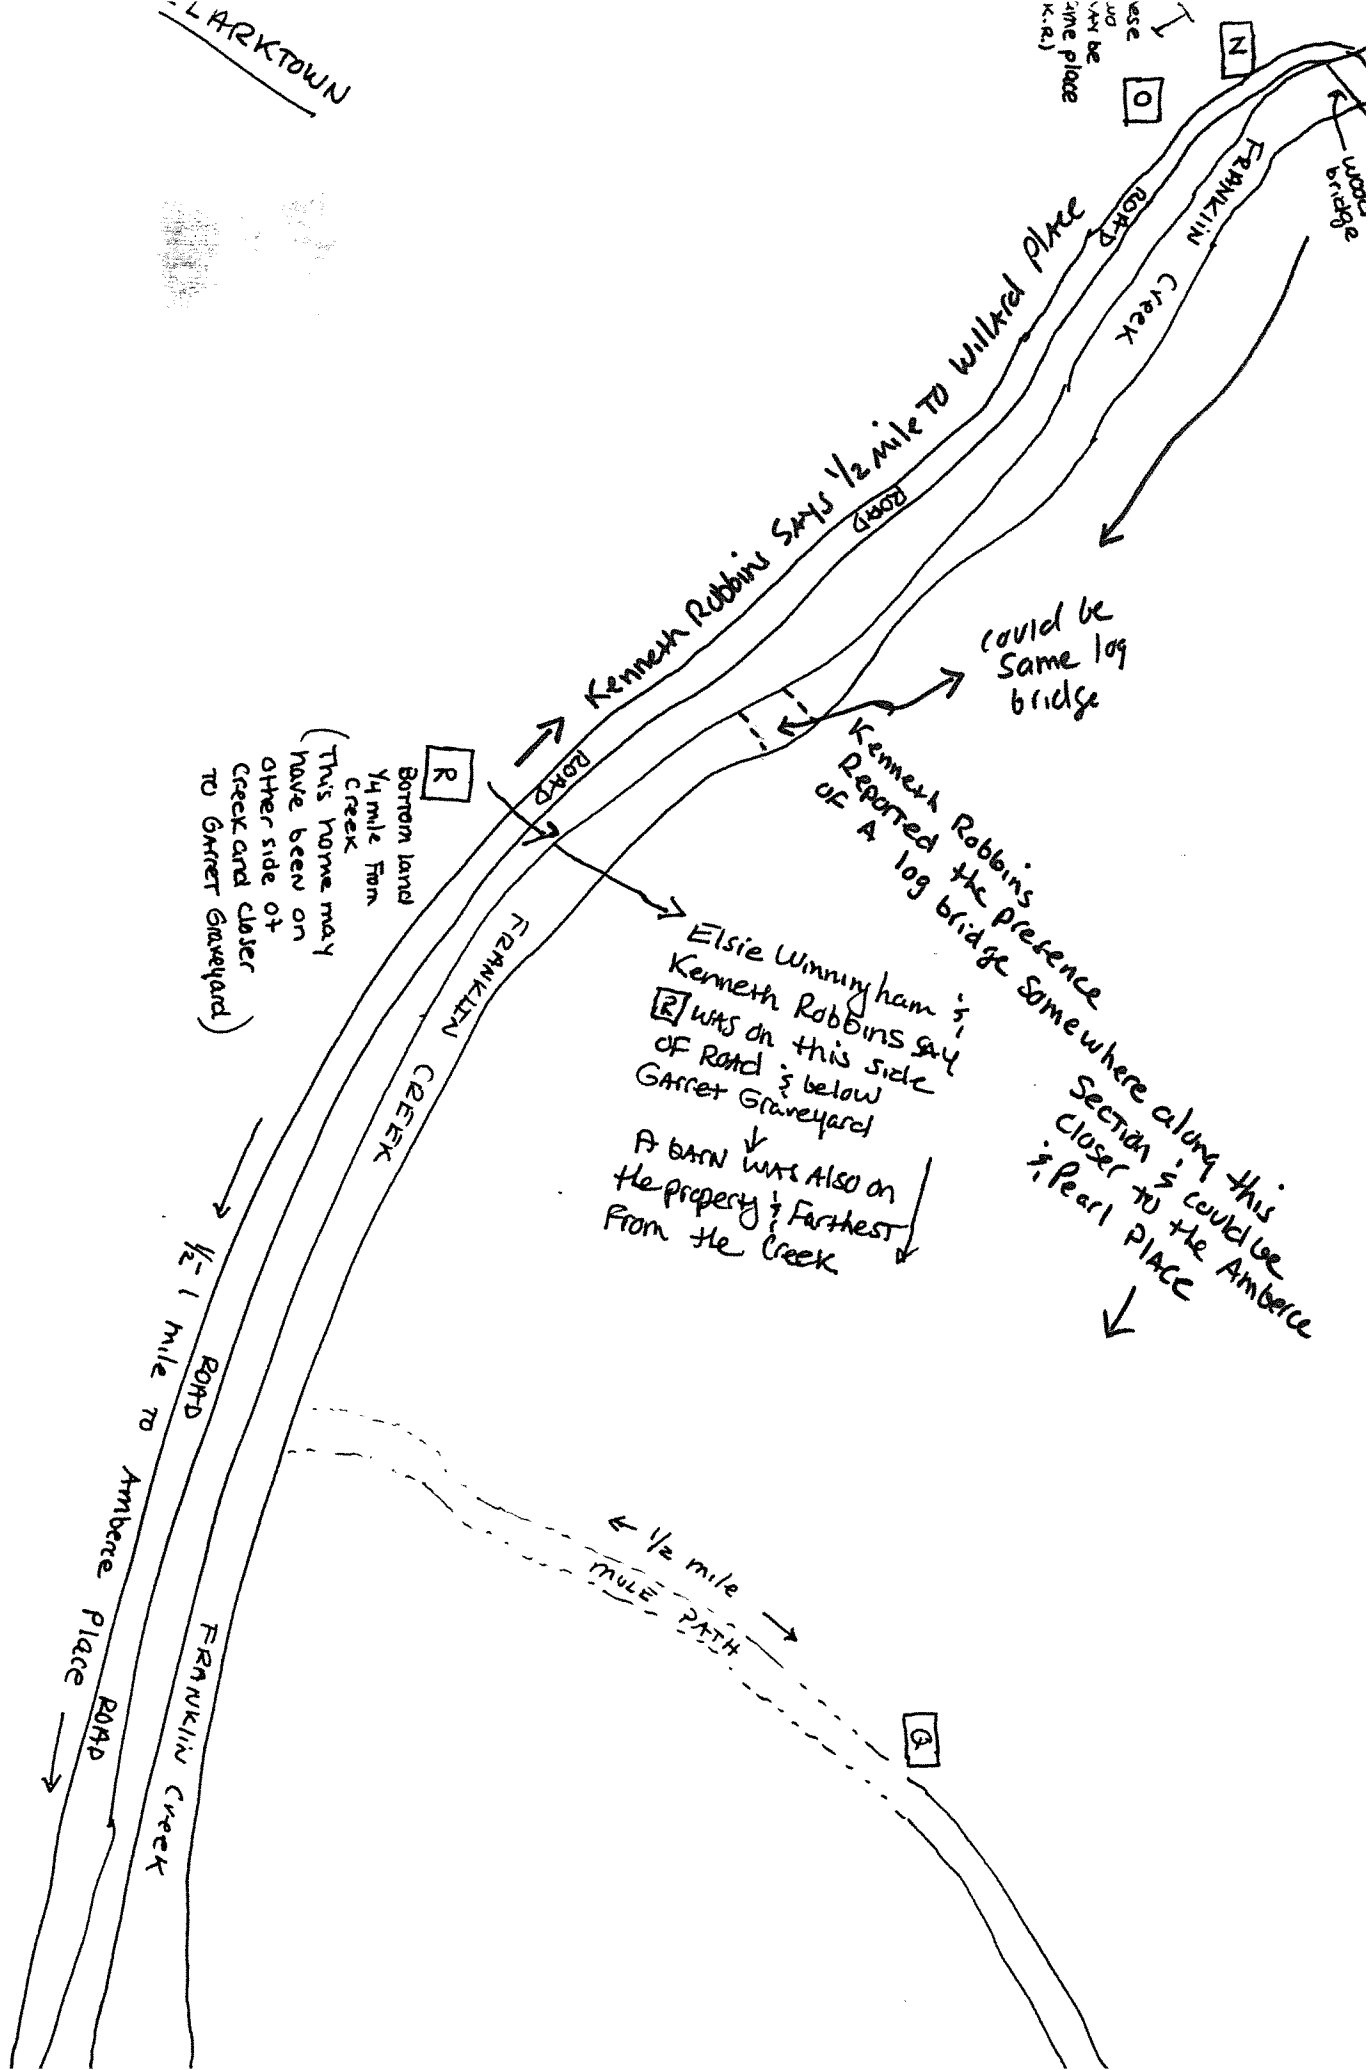 LARKTOWN
ese
wo
be
me place
K.R.)
N
O
bridge
ROAD
FRANKlIN Creek
Kenneth Robbins SAYS 1/2 Mile TO Willard Place
ROAD
could be
Same log
bridge
Kenneth Robbins
Reported the presence
OF A log bridge Somewhere along this
Section & could be
closer to the Amberce
& Pearl PlACE
ROAD
R
Bottom land
1/4 mile From
Creek
(This home may
have been on
other side of
creek and closer
TO GArreT Graveyard)
Elsie Winningham &
Kenneth Robbins SAY
R WAS on this side
OF ROAd & below
GArret Graveyard
A BARN WAS Also on
the property & Farthest
From the Creek
FRANKlIN CREEK
1/2-1 mile TO Amberce Place
ROAD
1/2 mile
MULE PATH
Q
ROAD
FRANKlIN Creek